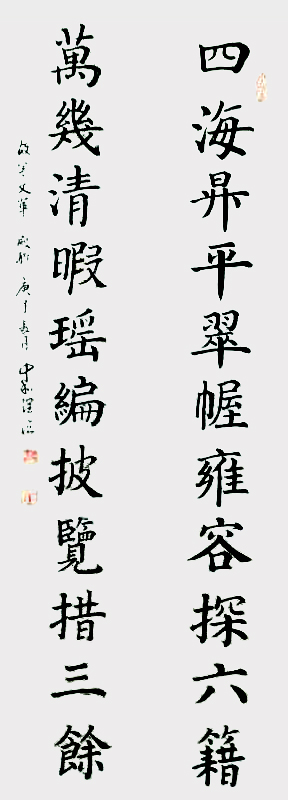 四海昇平翠幄雍容探六籍
萬幾清暇瑶編披覽措三餘